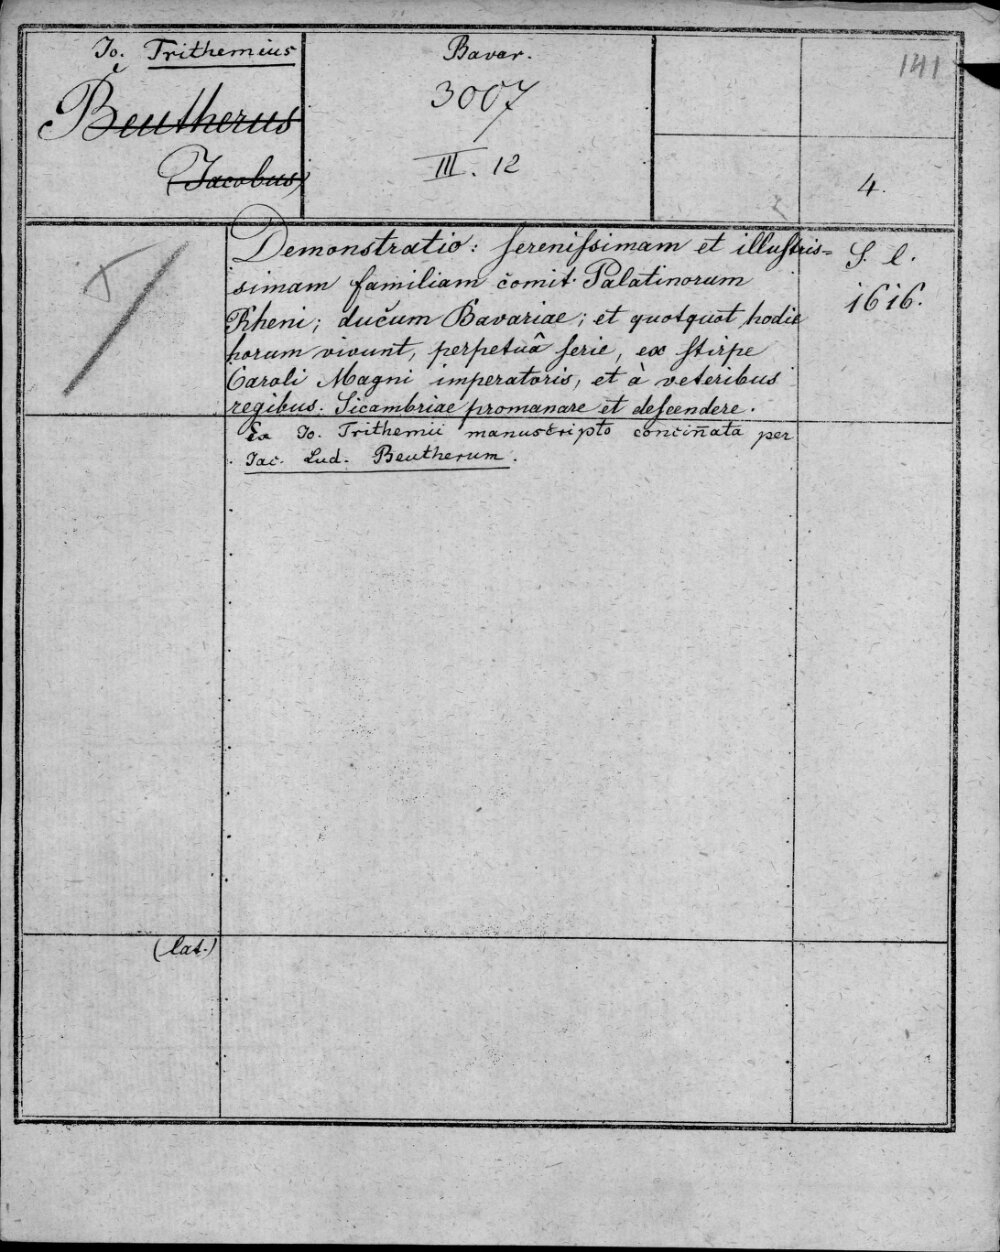 Jo. Trithemius
Beutherus
(Jacobus)
Bavar.
3007
III. 12
141
4.
Demonstratio: ſereniſsimam et illuſtris=
simam familiam comit. Palatinorum
Rheni; ducum Bavariae; et quotquot hodie
horum vivunt, perpetuâ ſerie, ex ſtirpe
Caroli Magni imperatoris, et à veteribus
regibus. Sicambriae promanare et deſcendere.
Ex Jo. Trithemii manuscripto concinata per
Jac. Lud. Beutherum.
S. l.
1616.
(lat.)